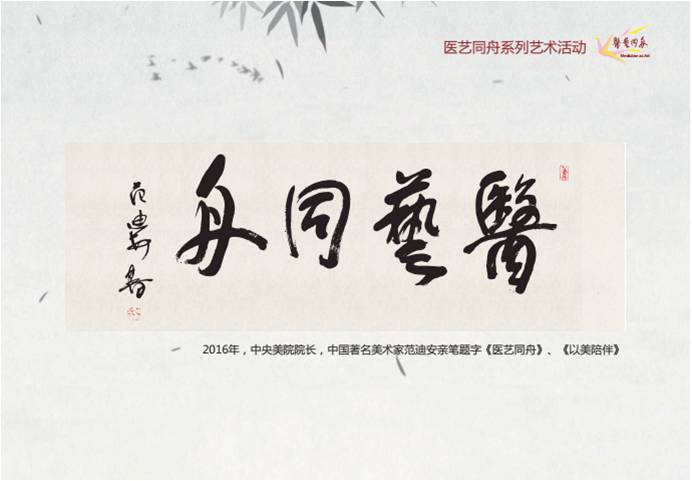 医艺同舟系列艺术活动
醫藝同舟
醫藝同舟
范迪安
2016年，中央美院院长，中国著名美术家范迪安亲笔题字《医艺同舟》、《以美陪伴》